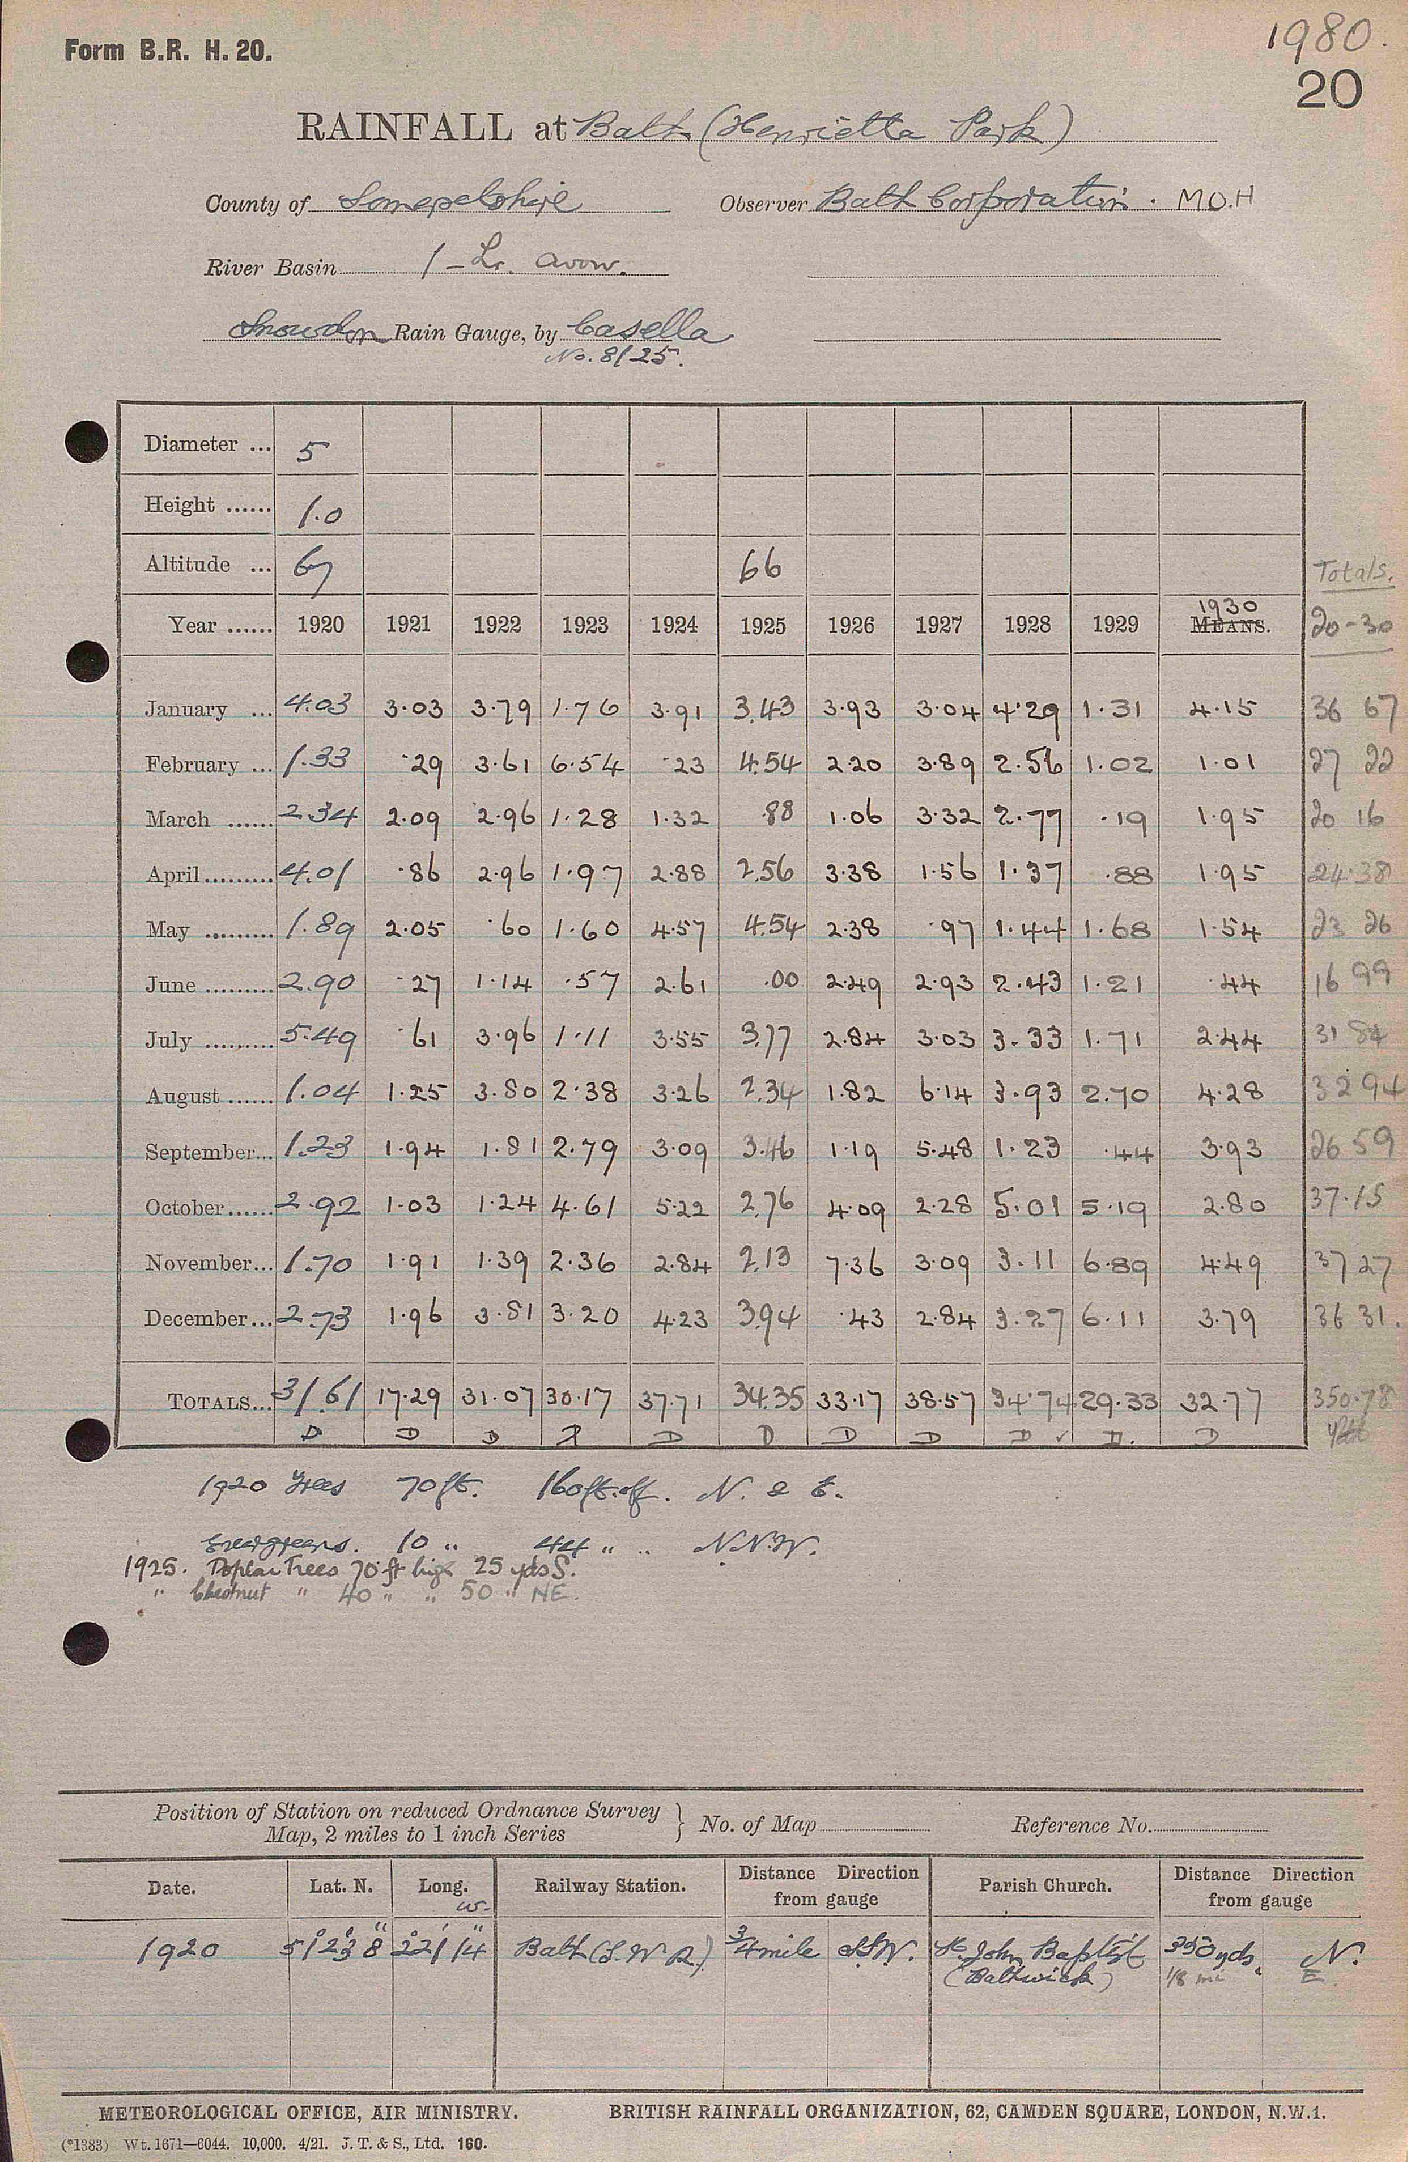 Form B.R. H. 20.
1980.
20
RAINFALL at Bath (Henrietta Park)
County of Somersetshire Observer Bath Corporation. M.O.H
River Basin 1 - Lr. Avon.
Snowdon Rain Gauge, by Casella
No. 8125.
Diameter ... 5
Height ...... 1.0
Altitude ... 67 66 Totals.
Year ...... 1920 1921 1922 1923 1924 1925 1926 1927 1928 1929 1930 MEANS. 20-30
January ... 4.03 3.03 3.79 1.76 3.91 3.43 3.93 3.04 4.29 1.31 4.15 36 67
February ... 1.33 .29 3.61 6.54 .23 4.54 2.20 3.89 2.56 1.02 1.01 27 22
March ...... 2.34 2.09 2.96 1.28 1.32 .88 1.06 3.32 2.77 .19 1.95 20 16
April ......... 4.01 .86 2.96 1.97 2.88 2.56 3.38 1.56 1.37 .88 1.95 24.38
May ......... 1.89 2.05 .60 1.60 4.57 4.54 2.38 .97 1.44 1.68 1.54 23 26
June ......... 2.90 .27 1.14 .57 2.61 .00 2.49 2.93 2.43 1.21 .44 16 99
July ......... 5.49 .61 3.96 1.11 3.55 3.77 2.84 3.03 3.33 1.71 2.44 31 84
August ...... 1.04 1.25 3.80 2.38 3.26 2.34 1.82 6.14 3.93 2.70 4.28 32 94
September... 1.23 1.94 1.81 2.79 3.09 3.46 1.19 5.48 1.23 .44 3.93 26 59
October...... 2.92 1.03 1.24 4.61 5.22 2.76 4.09 2.28 5.01 5.19 2.80 37.15
November... 1.70 1.91 1.39 2.36 2.84 2.13 7.36 3.09 3.11 6.89 4.49 37 27
December... 2.73 1.96 3.81 3.20 4.23 3.94 .43 2.84 3.27 6.11 3.79 36 31.
TOTALS... 31.61 17.29 31.07 30.17 37.71 34.35 33.17 38.57 34.74 29.33 32.77 350.78
D D D D D D D D D ✓ D. D
1920 Trees 70 ft. 160 ft. off. N. & E.
Evergreens. 10 " 44 " .. N.N.W.
1925. Poplar Trees 70 ft high 25 yds S.
" Chestnut " 40 " " 50 " NE.
Position of Station on reduced Ordnance Survey
Map, 2 miles to 1 inch Series } No. of Map Reference No.
Date. Lat. N. Long. W. Railway Station. Distance Direction from gauge Parish Church. Distance Direction from gauge
1920 51° 23' 8" 2° 21' 14" Bath (S.W.R) 3/4 mile S.S.W. St. John Baptist 350 yds. N.
(Bathwick) 1/8 mi E.
METEOROLOGICAL OFFICE, AIR MINISTRY. BRITISH RAINFALL ORGANIZATION, 62, CAMDEN SQUARE, LONDON, N.W.1.
(*1383) Wt. 1671—6044. 10,000. 4/21. J. T. & S., Ltd. 160.